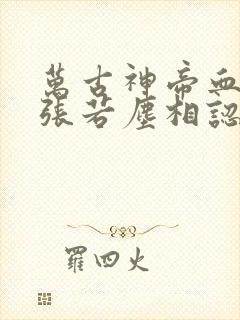 萬古神帝血
張若塵相認
羅四火